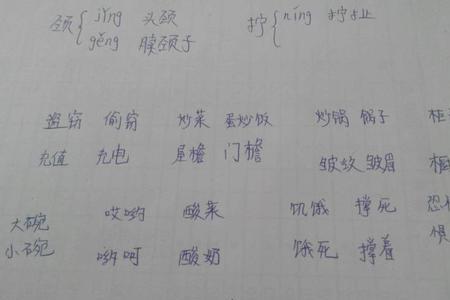 颈 jǐng 头颈 拧 níng
gěng 脖颈子
盗窃 偷窃 炒菜 蛋炒饭 炒锅 锅子
充值 充电 屋檐 门檐 皱纹 皱眉
大碗 哎哟 酸菜 饥饿 撑死
小碗 哟呵 酸奶 饿死 撑着